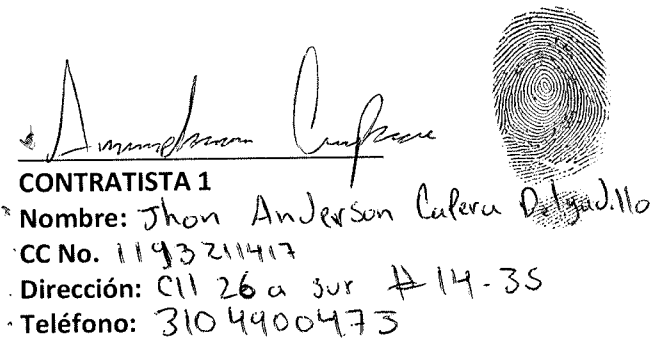 CONTRATISTA 1
Nombre: Jhon Anderson Calera Delgadillo
CC No. 1193211417
Dirección: Cll 26 a sur # 14-35
Teléfono: 3104900473